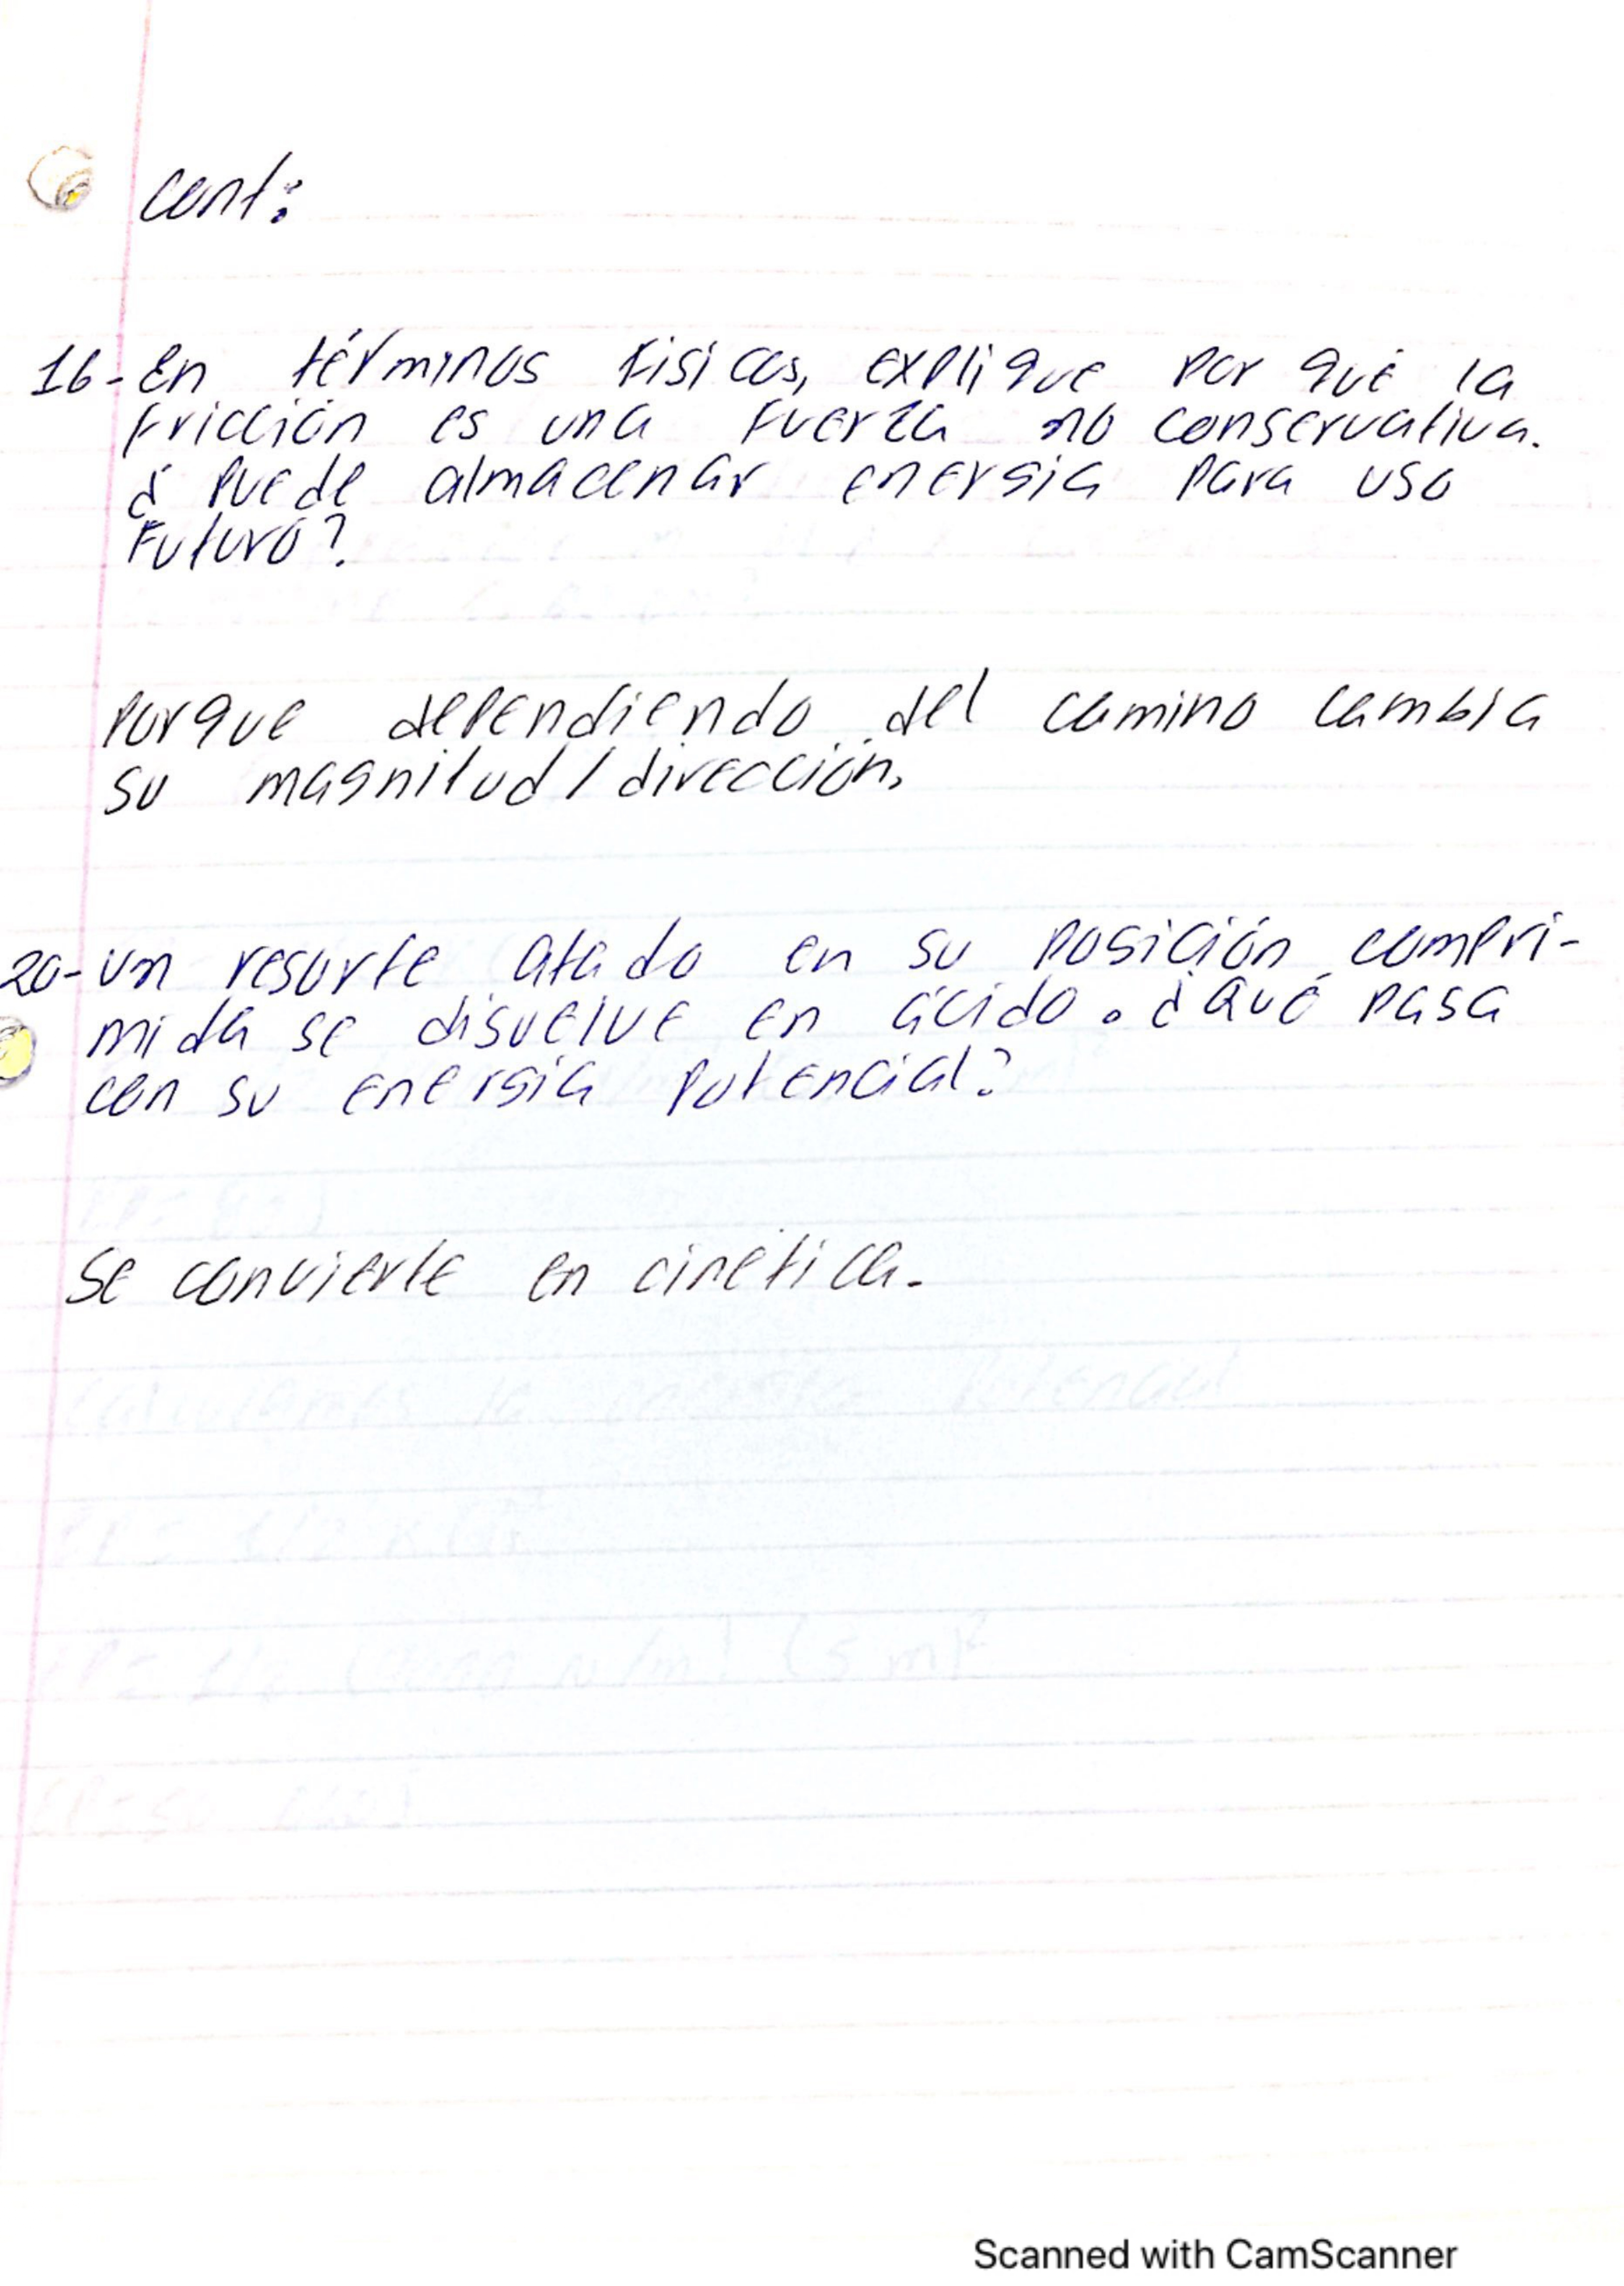 cont:
16-En términos físicos, explique por qué la
fricción es una fuerza no conservativa.
¿ Puede almacenar energía para uso
futuro?
Porque dependiendo del camino cambia
su magnitud/dirección.
20-Un resorte atado en su posición compri-
mida se disuelve en ácido. ¿Qué pasa
con su energía potencial?
Se convierte en cinética.
Scanned with CamScanner